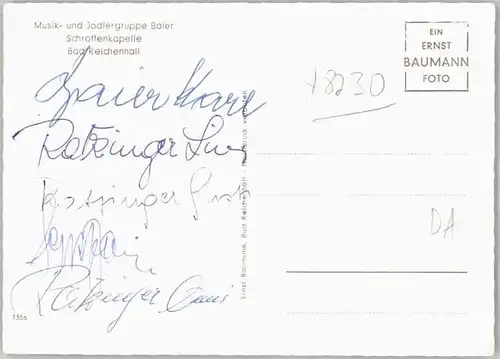 Musik- und Jodlergruppe Baier
Schroffenkapelle
Bad Reichenhall
EIN
ERNST
BAUMANN
FOTO
18230
Baier Karl
Ratzinger
Ratzinger
Ratzinger
DA
Ernst Baumann, Bad Reichenhall - Nachdruck verboten